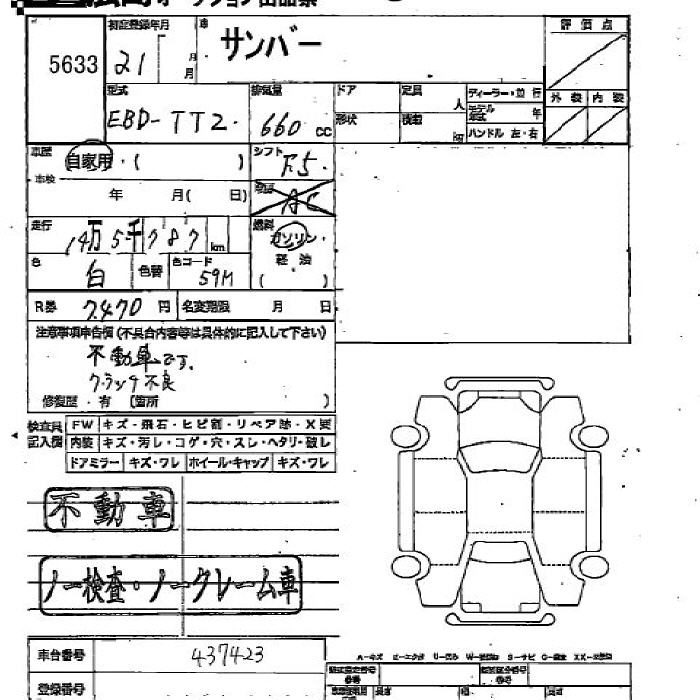 オークション出品票
5633
初度登録年月
21 月
月
車
サンバー
評価点
型式
EBD-TT2.
排気量
660 cc
ドア
形状
定員 人
積載 kg
ディーラー・並行
モデル 年
ハンドル 左・右
外装 内装
車歴
自家用・( )
シフト
F5.
車検
年 月( 日)
AC
走行
14万5千787km
燃料
ガソリン・
軽油
( )
色
白
色替
色コード
59M
R券 7,470円
名変期限 月 日
注意事項申告欄(不具合内容等は具体的に記入して下さい)
不動車です.
クラッチ不良
修復歴・有 [箇所 )
検査員
記入欄
FW キズ・飛石・ヒビ割・リペア跡・X要
内装 キズ・汚レ・コゲ・穴・スレ・ヘタリ・破レ
ドアミラー キズ・ワレ ホイール・キャップ キズ・ワレ
不動車
ノー検査・ノークレーム車
車台番号 437423
登録番号